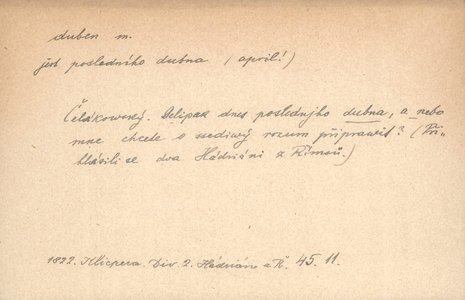 duben m.
jest posledního dubna (april!)
Čelakowský. Delipak dnes poslednjho dubna, a nebo
mne chcete o ssediwý rozum připrawit? (Při-
hlásili se dva Hádriáni z Římsů.)
1822. Klicpera. Div. 2. Hádrián z Ř. 45. 11.